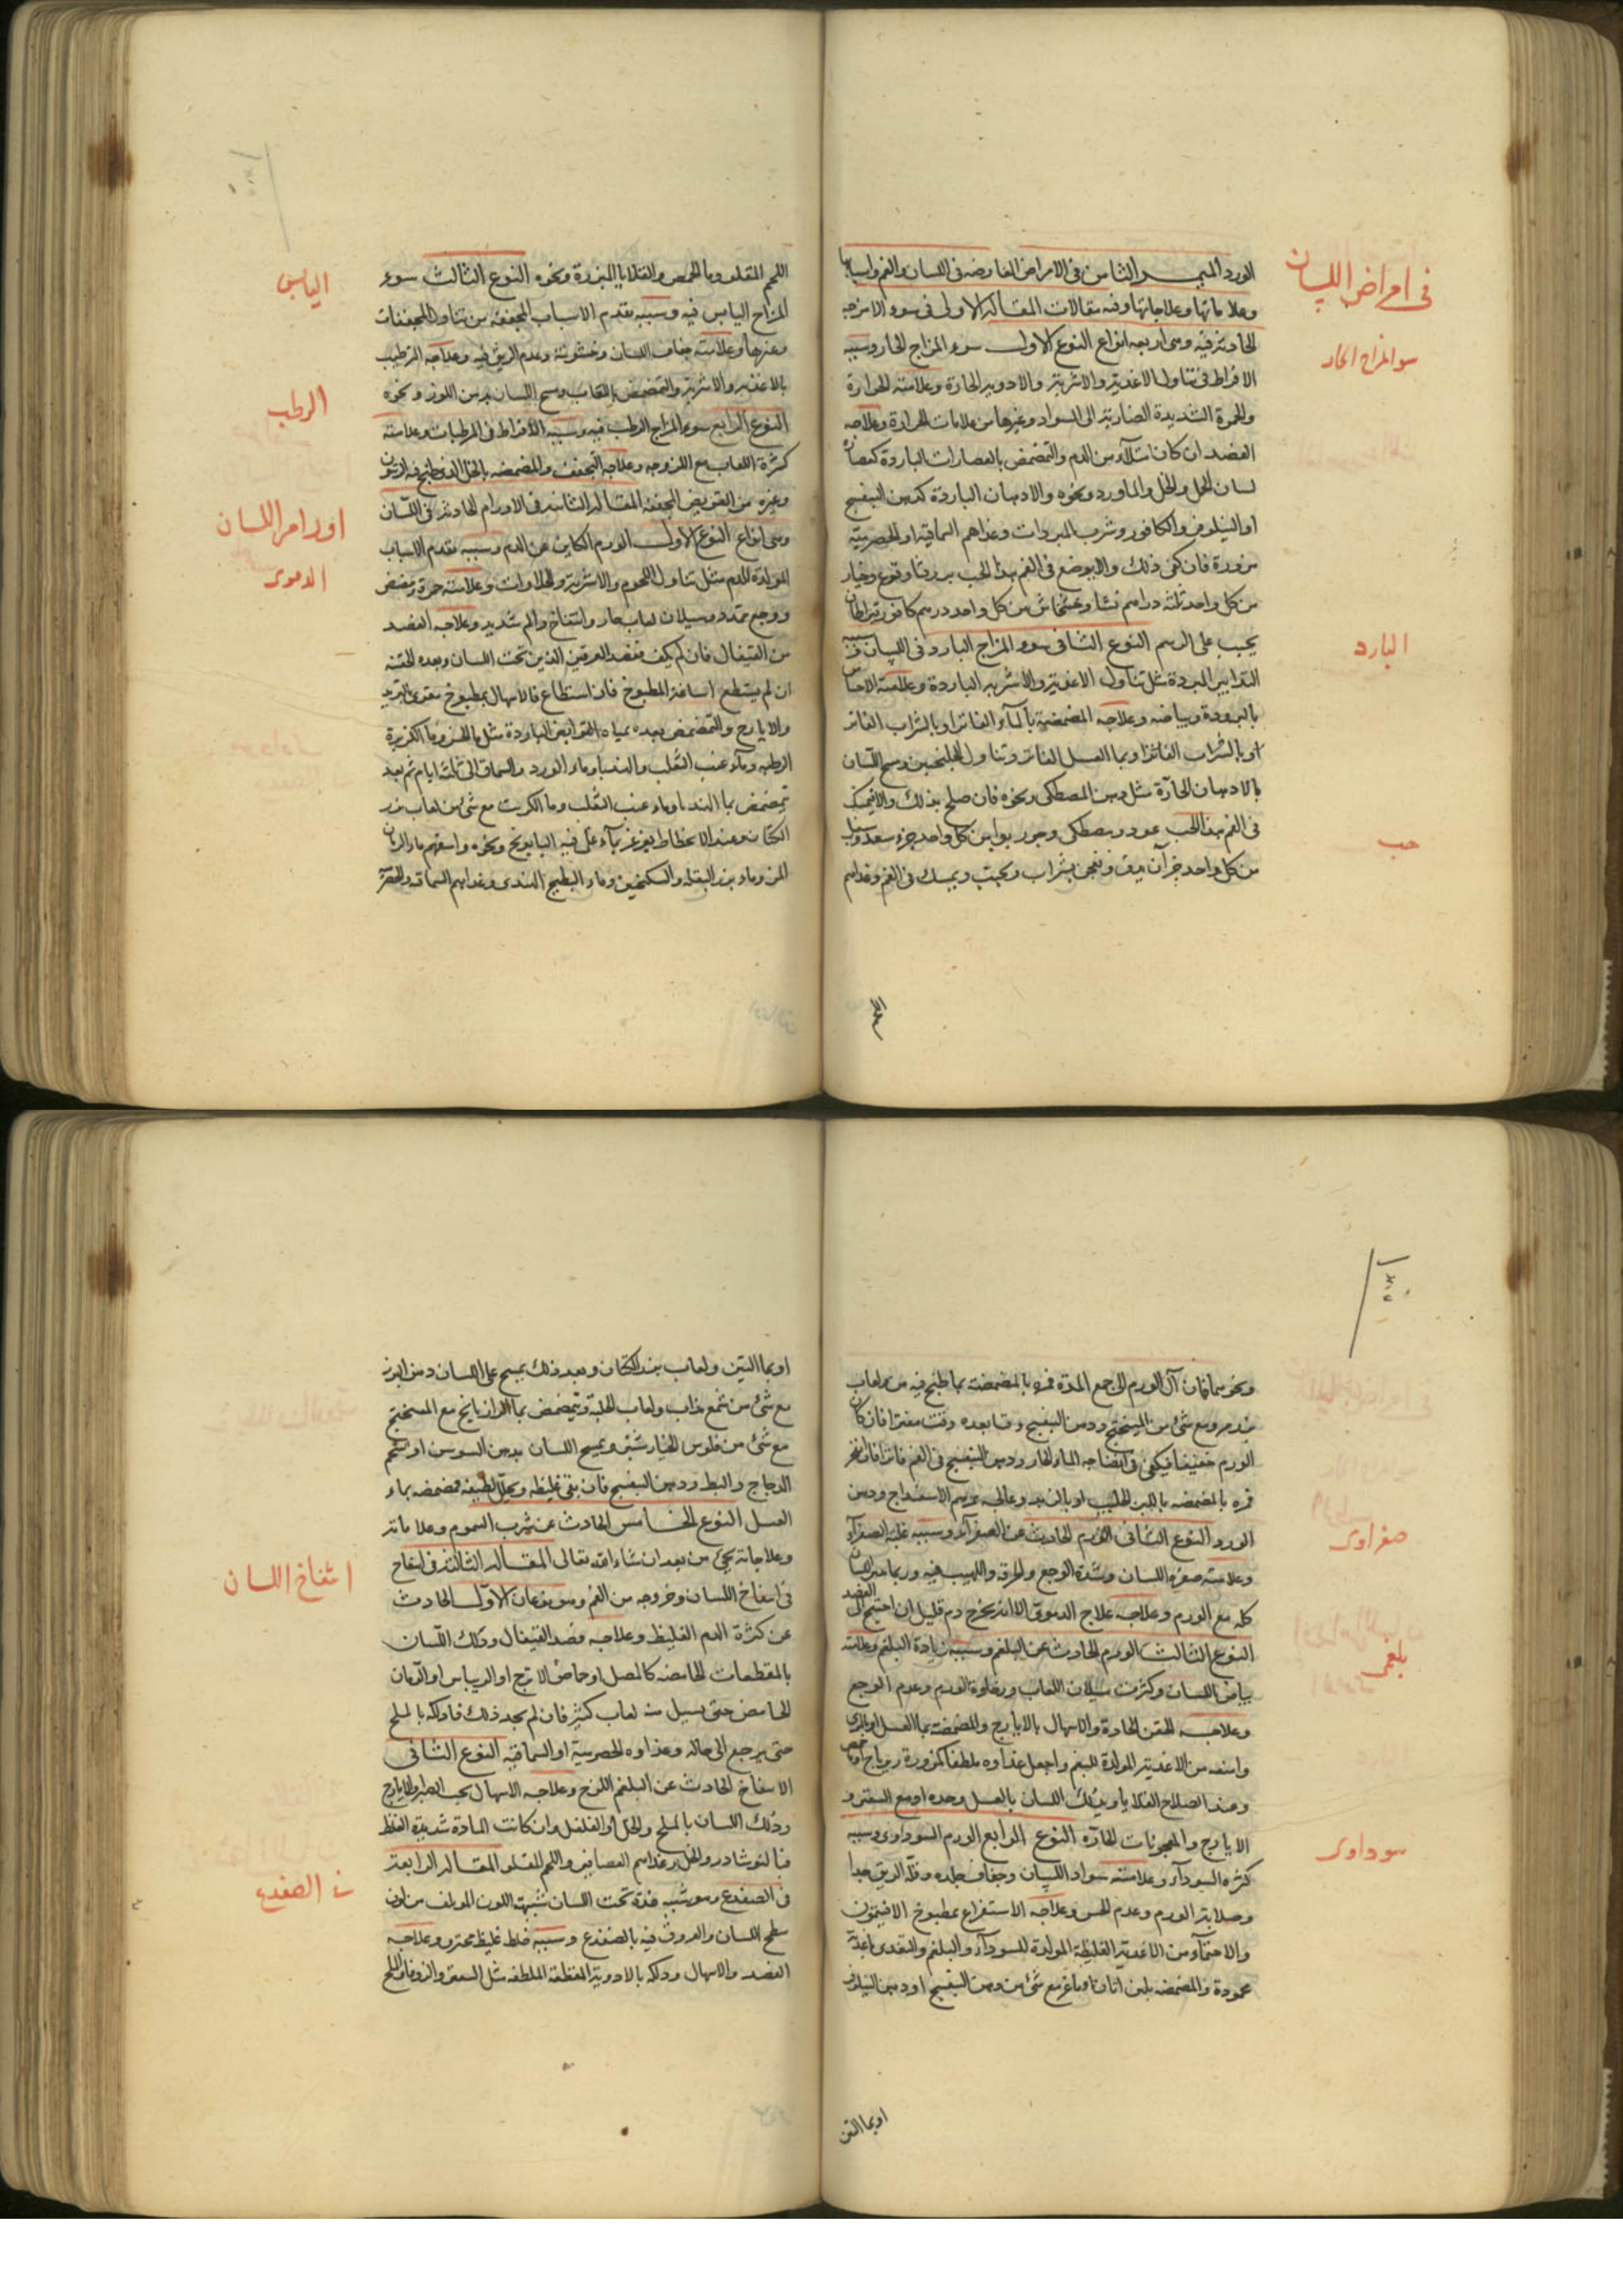 فى امراض اللسان
الورد الثامن فى الامراض العارضة فى اللسان والفم واسبابها
وعلاماتها وعلاجاتها وفيه مقالات المقالة الاولى فى سوء الامزجه
الحادثة فيه وهى اربعه انواع النوع الاول سوء المزاج الحار وسببه
سو المزاج الحار
الافراط فى تناول الاغدية والاشربة والادوية الحارة وعلامته الحرارة
والحمرة الشديدة الصاربة الى السواد وغيرها من علامات الحرارة وعلاجه
الفصد ان كان امتلاء من الدم والتمضمض بالعصارات الباردة كعصارة
لسان الحمل والخل والماورد ونحوه والادهان الباردة كدهن البنفسج
او النيلوفر والكافور وشرب المبردات وغذاهم السماقية او الحصرمية
مزورة فان كفى ذلك والا يوضع فى الفم هذا الحب بزر وخيار
من كل واحد ثلثة دراهم نشا وخشخاش من كل واحد درهم كافور قيراطان
يحبب على الرسم النوع الثانى سوء المزاج البارد فى اللسان سببه
البارد
التدابير المبردة مثل تناول الاغدية والاشربه الباردة وعلامته الاحساس
بالبرودة وبياضه وعلاجه المضمضة بالماء الفاتر او بالشراب الفاتر
او بالشراب الفاتر او بما العسل الفاتر وتناول الجلنجبين ومسح اللسان
بالادهان الحارة مثل دهن المصطكى ونحوه فان صلح بذلك والا فيمسك
فى الفم هذا الحب عود ومصطكى وجوز بوا من كل واحد جزء سعد
حب
من كل واحد جزآن يدق ويعجن بشراب ويحبب ويمسك فى الفم وغذاهم
اللحم
اللحم المقلو وما الحمص والقلايا المبزرة ونحوه النوع الثالث سوء
اليابس
المزاج اليابس فيه وسببه تقدم الاسباب المجففة من تناول المجففات
وغيرها وعلامته جفاف اللسان وخشونته وعدم الريق فيه وعلاجه الترطيب
بالاغذيه والاشربة والتمضمض باللعاب ومسح اللسان بدهن اللوز ونحوه
الرطب
النوع الرابع سوء المزاج الرطب فيه وسببه الافراط فى المرطبات وعلامته
كثرة اللعاب مع اللزوجه وعلاجه التجفيف والمضمضه بالخل الذى طبخ فيه الزيتون
وغيره من القوابض المجففة المقالة الثانية فى الاورام الحادثة فى اللسان
اورام اللسان
وهى انواع النوع الاول الورم الكاين عن الدم وسببه تقدم الاسباب
المولدة للدم مثل تناول اللحوم والاشربة والحلاوات وعلامته حمرة
الدموى
ووجع تمدد وسيلان لعاب حار وانتفاخ والم شديد وعلاجه الفصد
من القيفال فان لم يكف ففصد العرقين الذين تحت اللسان وبعده الحقنه
ان لم يستطع اساغة المطبوخ فان استطاع فالاسهال بمطبوخ مقوى بالتربد
والايارج والتمضمض بعده بمياه القوابض الباردة مثل ما الخس وما الكزبرة
الرطبه وماء عنب الثعلب والهندبا وماء الورد والسماق الى ثلثة ايام ثم بعد
يتمضمض بما الهندبا وماء عنب الثعلب وما الكرنب مع شئ من لعاب بزر
الكتان وعند الانحطاط يغرغر بماء غلى فيه البابونج ونحوه واسقهم ماء الرمان
المز وماء بزر البقلة والسكنجبين وماء البطيخ الهندى وغذاهم السماقيه والحصرمية
ونحوهما فان آل الورم الى جمع المدة فمره بالمضمضة بما طبخ فيه
مع شئ من الميبختج ودهن البنفسج
الورم خفيفا فيكفى فى انضاجه الماء الحار ودهن البنفسج فى الفم فاترا فان انفجر
فمره بالمضمضه باللبن الحليب او بالزبد وعالجه بمرهم الاسفيداج ودهن
الورد النوع الثانى الورم الحادث عن الصفرآء وسببه غلبة الصفرآء
صفراوى
وعلامته صفرة اللسان وشدة الوجع والحرقه واللهيب فيه وربما
كله مع الورم وعلاجه علاج الدموى الا انه يخرج دم قليل ان احتيج الى الفصد
النوع الثالث الورم الحادث عن البلغم وسببه زيادة البلغم وعلامته
بلغمى
بياض اللسان وكثرت سيلان اللعاب ورخاوة الورم وعدم الوجع
وعلاجه الحقن الحادة والاسهال بالايارج والمضمضة بما العسل
وامنعه من الاغدية المولدة للبلغم واجعل غذاوه ملطفا كمزورة زيرباج
وعند الصلاح القلايا ويدلك اللسان بالعسل وحده او مع السعتر و
الايارج والمعجونات الحارّه النوع الرابع الورم السوداوى وسببه
سوداوى
كثره السودآء وعلامته سواد اللسان وجفاف جلده وقلّة الريق جدا
وصلابة الورم وعدم الحس وعلاجه الاستفراغ بمطبوخ الافتيمون
والاحتمآء من الاغدية الغليظة المولدة للسودآء والبلغم والتغدى باغدية
محمودة والمضمضه بلبن اتان او ماعز مع شئ من دهن البنفسج او دهن النيلوفر
او بما التين
او بما التين ولعاب بزر الكتان وبعد ذلك يمسح على اللسان دهن
مع شئ من شمع مذاب ولعاب الحلبة ويتمضمض بما الرازيانج مع الميبختج
مع شئ من فلوس الخيارشنبر ويمسح اللسان بدهن السوسن او شحم
الدجاج والبط ودهن البنفسج فان بقى غليظه وتحلل لطيفه فمضمضه بماء
العسل النوع الخامس الحادث عن شرب السموم وعلاماته
وعلاجاته يجئ من بعد ان شاء الله تعالى المقالة الثالثة فى انتفاخ
انتفاخ اللسان
فى انتفاخ اللسان وخروجه من الفم وهو نوعان الاول الحادث
عن كثرة الدم الغليظ وعلاجه فصد القيفال ودلك اللسان
بالمقطعات الحامضه كالمصل او حماض الاترج او الريباس او الرمان
الحامض حتى يسيل منه لعاب كثير فان لم يجد ذلك فادلكه بالملح
حتى يرجع الى حاله وغذاوه الحصرمية او السماقيه النوع الثانى
الانتفاخ الحادث عن البلغم اللزج وعلاجه الاسهال بحب الصبر والايارج
ودلك اللسان بالملح والخل او الفلفل وان كانت المادة شديدة الغلظ
فبالنوشادر والخل وغذاهم العصافير واللحم المقلو المقالة الرابعة
فى الضفدع
فى الضفدع وهو شبيه غدة تحت اللسان شبيهة اللون المولف من لون
سطح اللسان والعروق فيه بالضفدع وسببه خلط غليظ محترق وعلاجه
الفصد والاسهال ودلكه بالادوية المقطعة الملطفه مثل السعتر والزوفا والملح